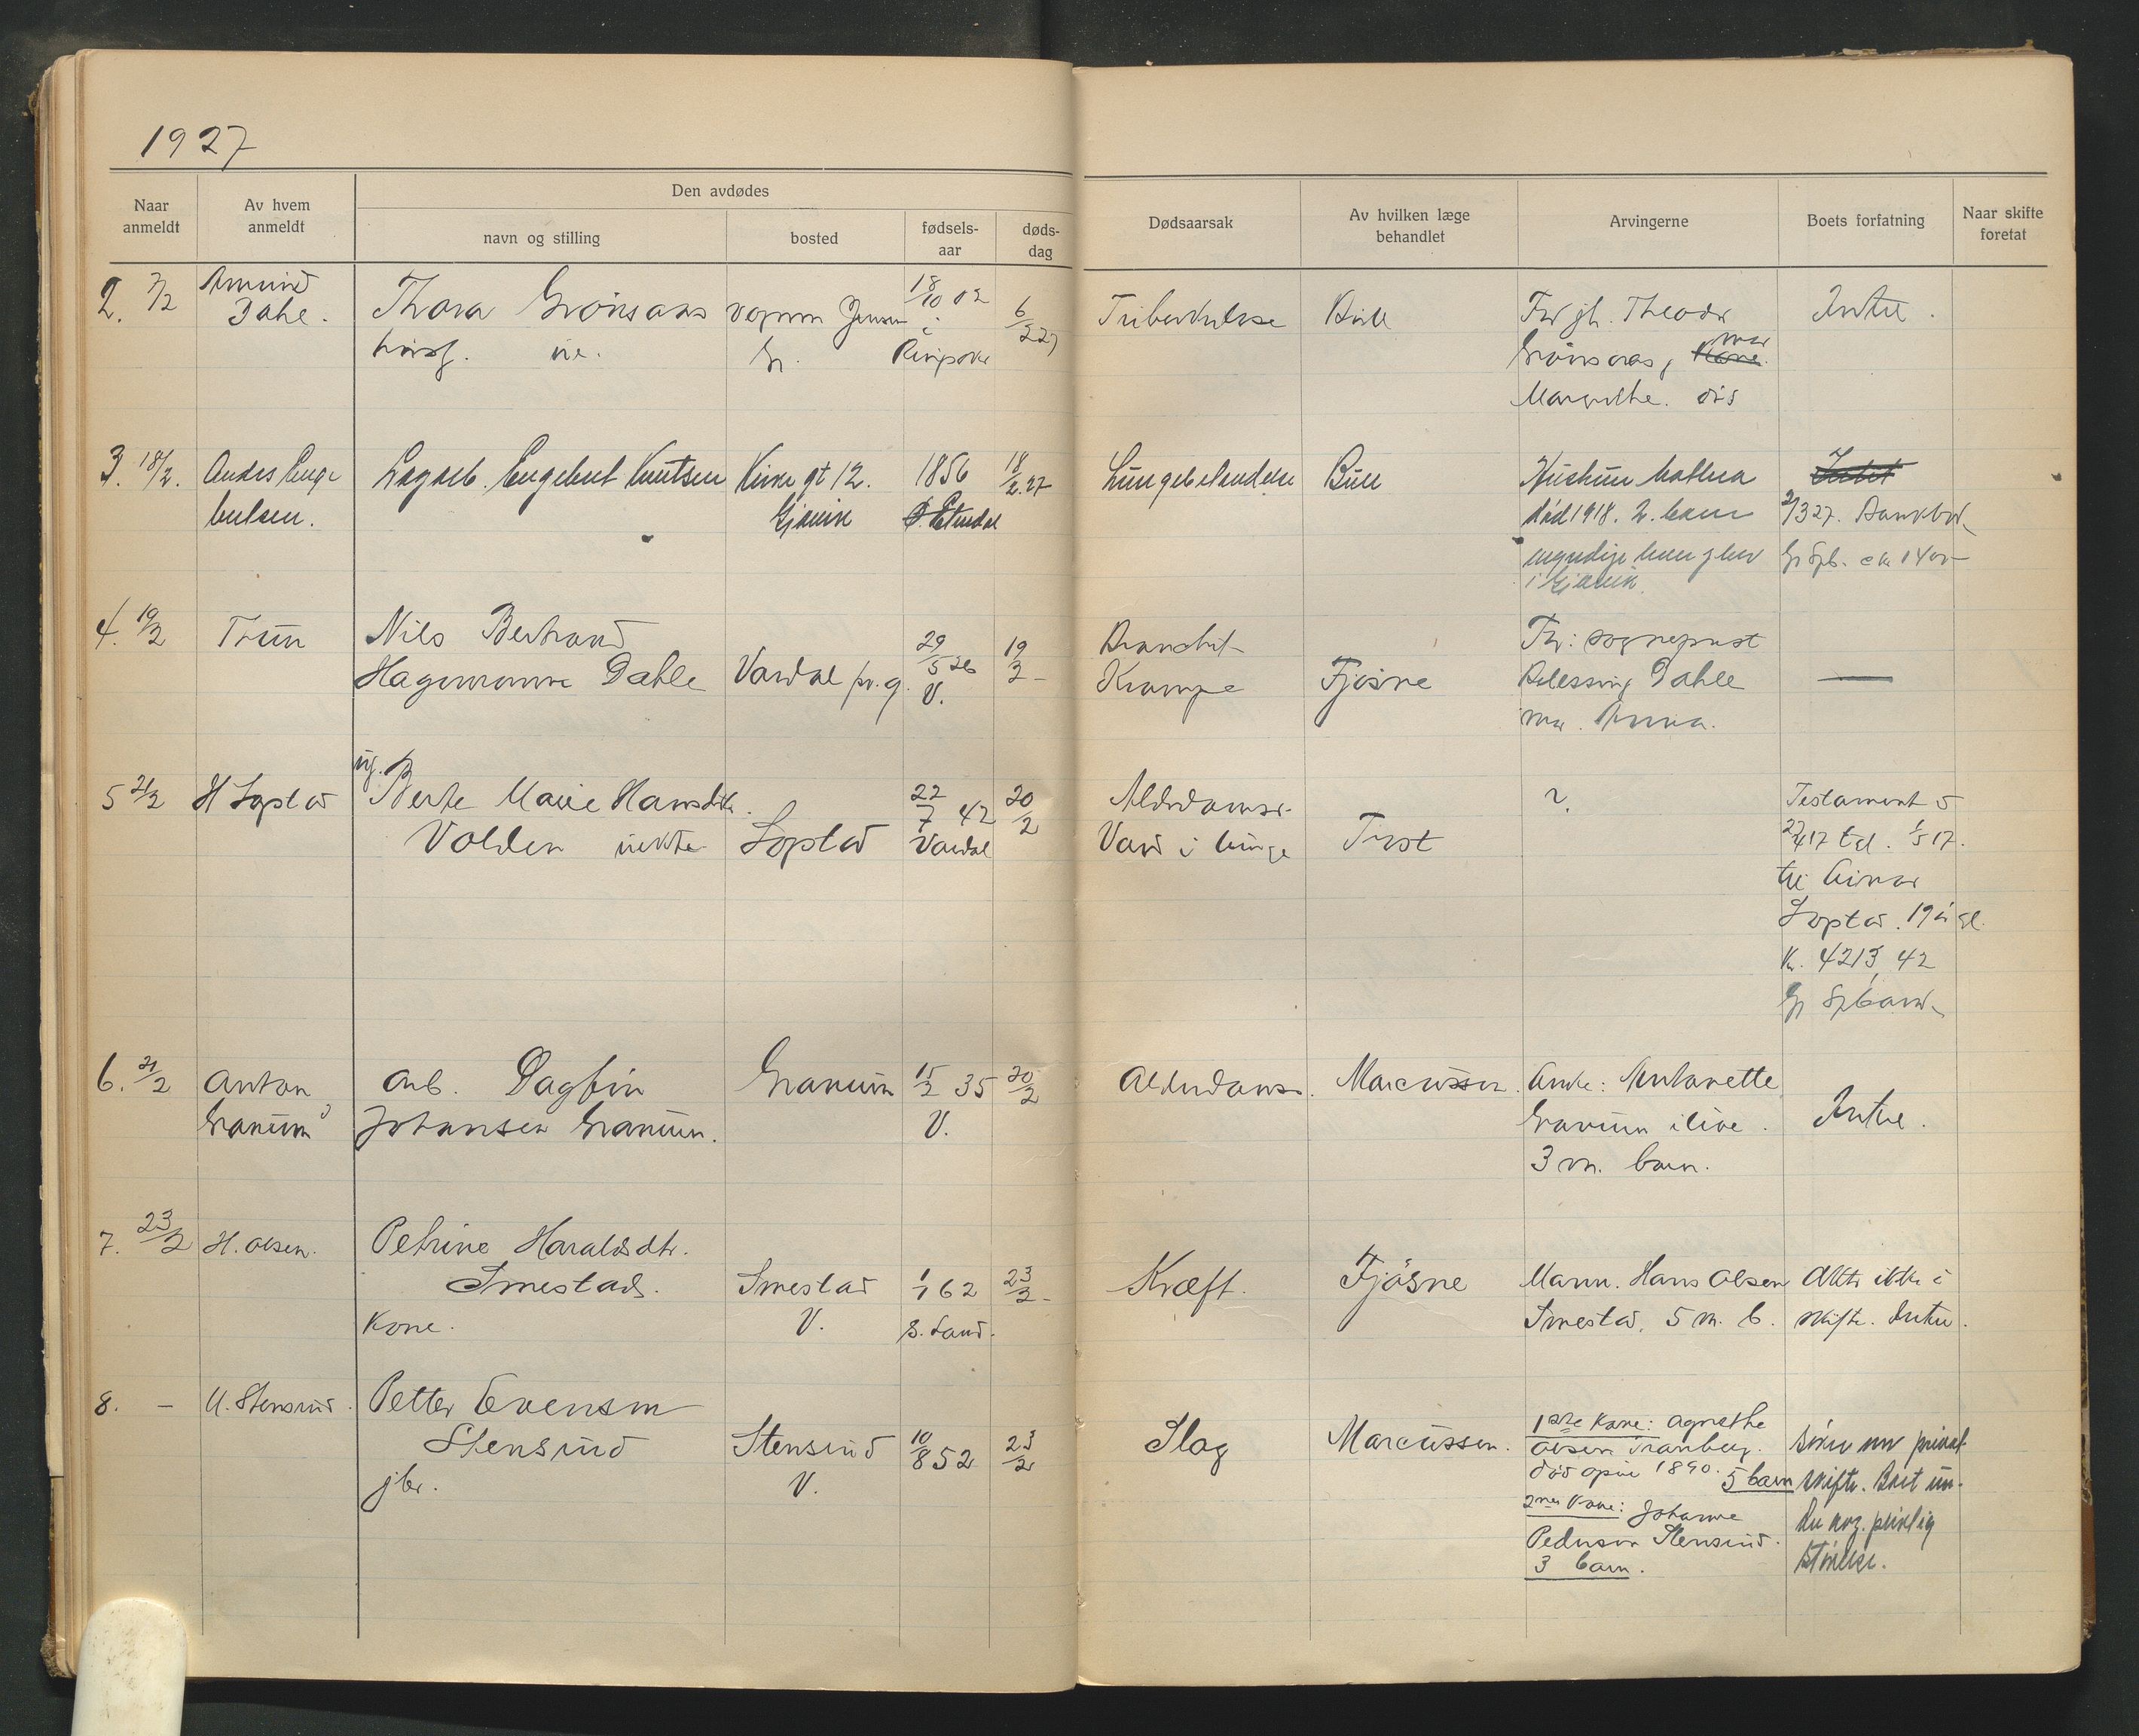 1927
Naar anmeldt
Av hvem anmeldt
Den avdødes
navn og stilling
bosted
fødsels-aar
døds-dag
Dødsaarsak
Av hvilken læge behandlet
Arvingerne
Boets forfatning
Naar skifte foretat
2. 7/2
Amund
Dahe.
Thora Grønsaas
18/10 02
6/2 27
i
Gj.
Bull
Theodor
mor
Kone.
Intet.
3. 18/2.
Anders Enge
bretsen.
Lagarb. Engebret Knutsen
Kirke gt 12.
Gjøvik
1856
Ø. Etnedal
18/2.27
Lungebetændelse
Bull
Hustru
død 1918. 2. barn
myndige
i Gjøvik.
Intet
2/3 27.
Gj Spb. ca 1400-
4. 19/2
Nils Bertrand
Hagemann Dahle
Vardal pr.g.
29/5 26
V.
19/2 -
Bronchit
Krampe
Fjøsne
Far: sogneprest
Dahle
mor. Anna.
—
5 21/2
H Sogstad
ug. Berte Marie Hansdtr.
Volden
Sogstad
22/7 42
Vardal
20/2
Alderdomsv.
Vand i lunge
Trost
?
Testament
27/4 17 tgl. 1/5 17.
til Einar
Sogstad. 19 år gl.
Kr. 4213,42
Gj Spbank
6. 21/2
Anton
Granum
Arb. Dagfin
Johansen Granum.
Granum
15/2 35
V.
20/2
Alderdomsv.
Marcussen.
Enke: Antonette
Granum i live.
3 m. barn.
Intet.
7. 23/2
H. Olsen.
Petrine Haraldsdtr.
Smestad.
Kone.
Smestad
V.
1/1 62
S. Land.
23/2 -
Kræft.
Fjøsne
Mann. Hans Olsen
Smestad, 5 m. b.
Sitter ikke i
skifte. Intet.
8. -
U. Stensrud.
Petter Evensen
Stensrud
gbr.
Stensrud
V.
10/8 52
23/2
Slag
Marcussen.
1ste Kone: Agnethe
Olsen Tranberg.
død 1890. 5 barn
2nen Kone: Johanne
Pedersen Stensrud.
3 barn.
privat
skifte. Boet un-